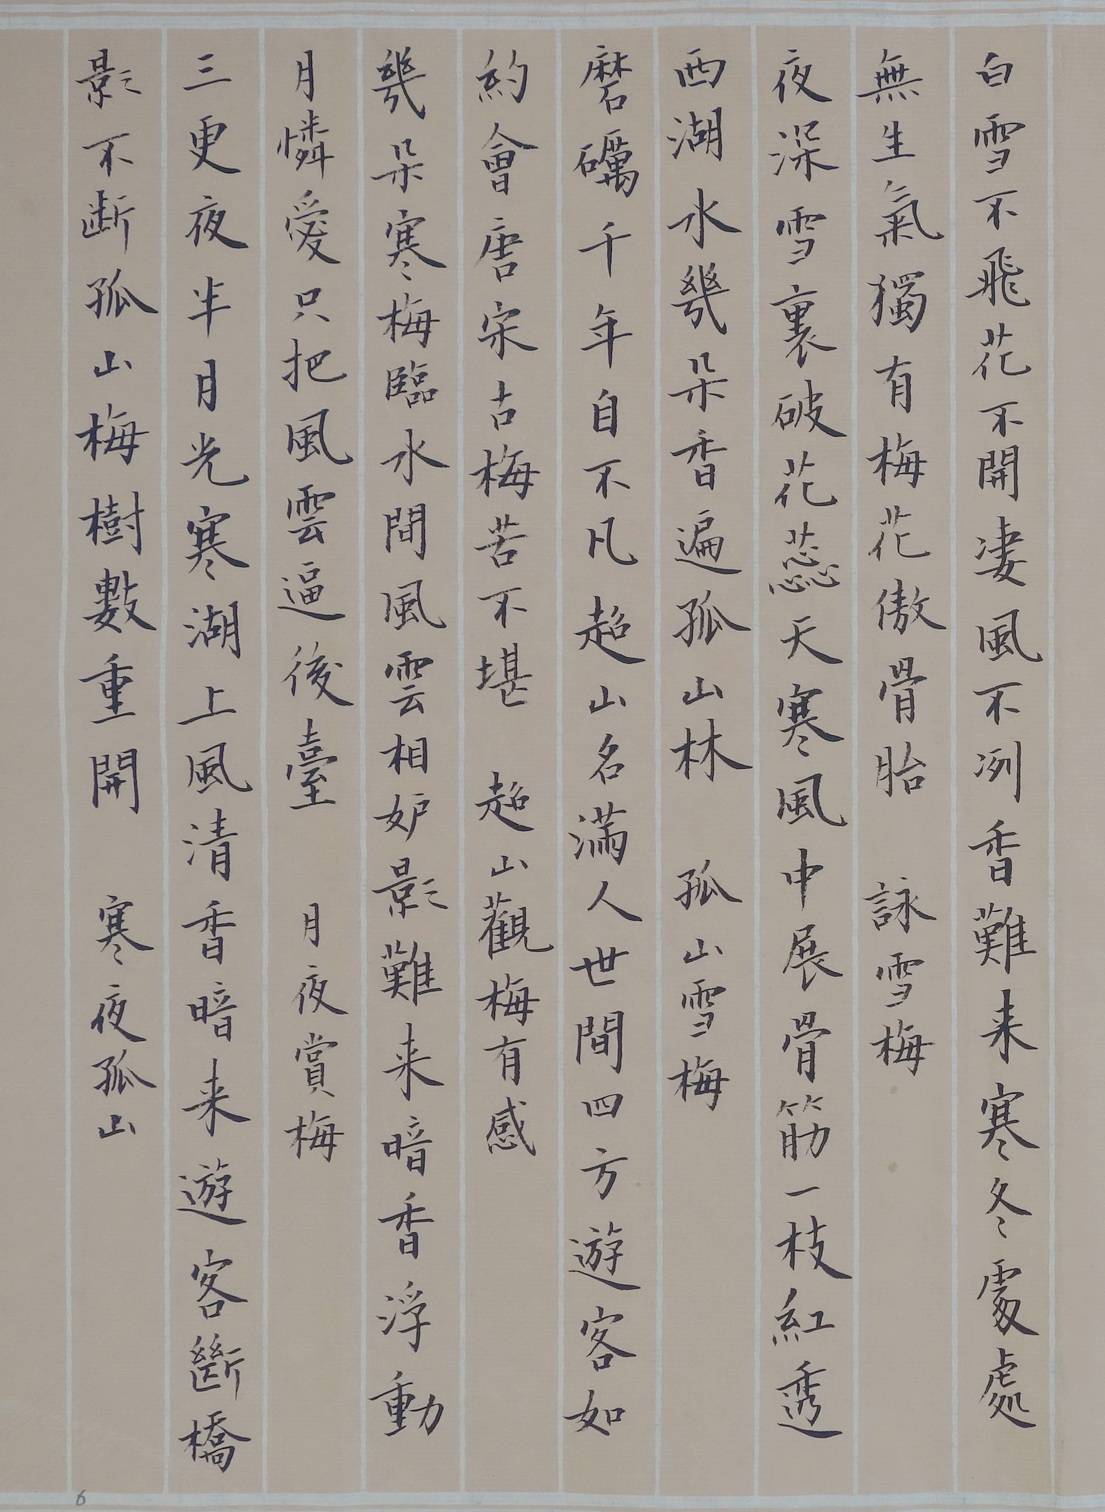 白雪不飛花不開凄風不冽香難来寒冬處處
無生氣獨有梅花傲骨胎 詠雪梅
夜深雪裏破花蕊天寒風中展骨筋一枝紅透
西湖水幾朵香遍孤山林 孤山雪梅
磨礪千年自不凡超山名滿人世間四方遊客如
約會唐宋古梅苦不堪 超山觀梅有感
幾朵寒梅臨水間風雲相妒影難来暗香浮動
月憐愛只把風雲逼後臺 月夜賞梅
三更夜半月光寒湖上風清香暗来遊客斷橋
影不断孤山梅樹數重開 寒夜孤山
6